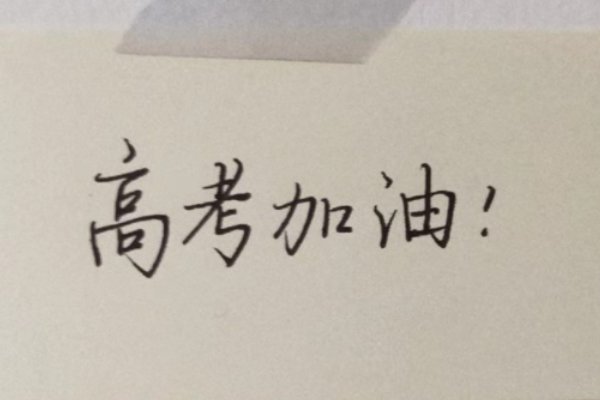 高考加油!